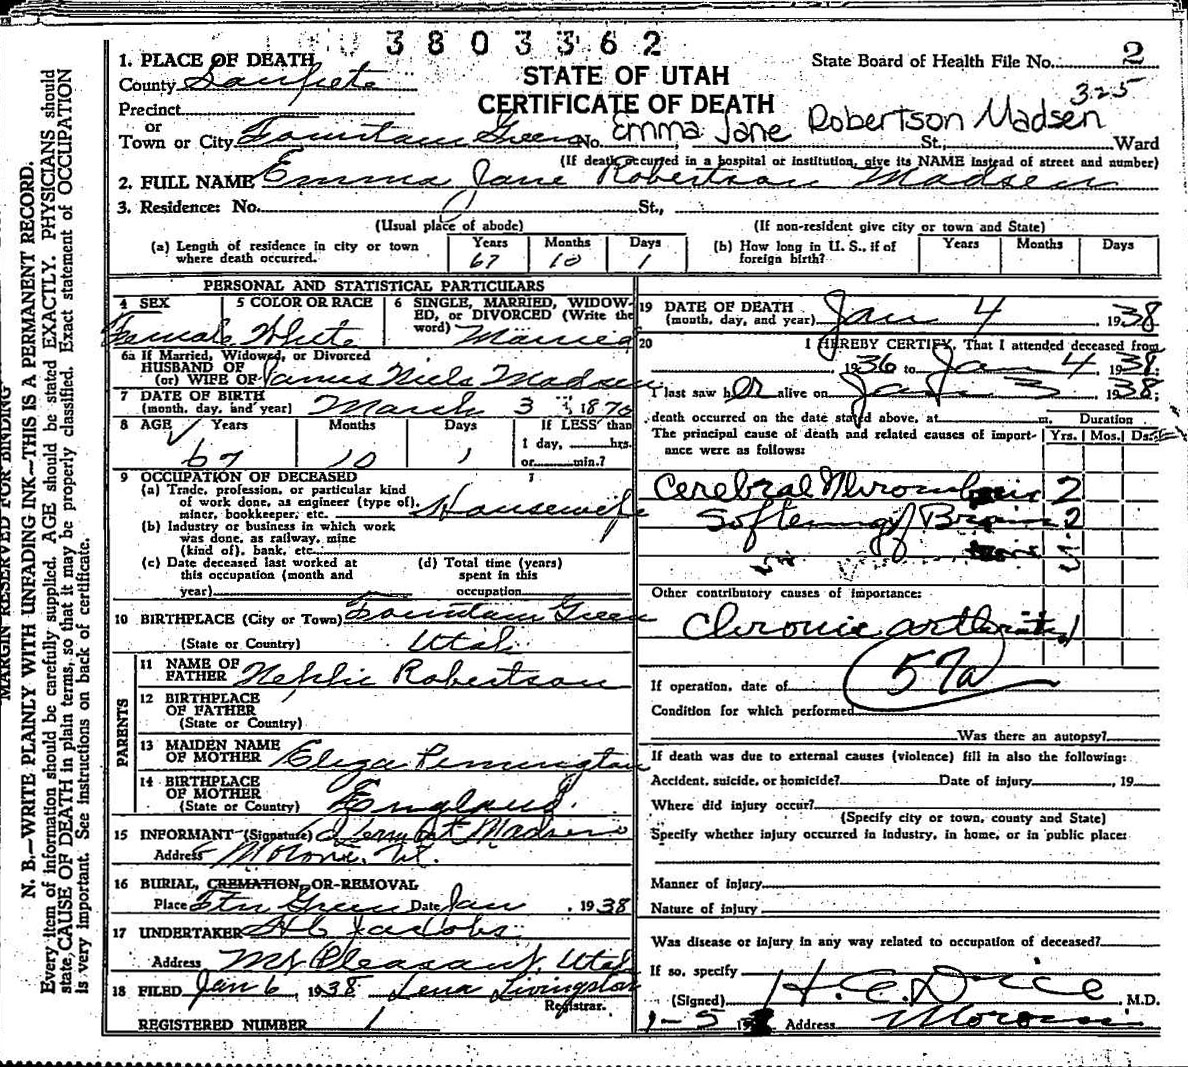 3803362
1. PLACE OF DEATH
County Sanpete
Precinct
or
Town or City Fountain Green No. Emma Jane Robertson Madsen St., Ward
STATE OF UTAH
CERTIFICATE OF DEATH
State Board of Health File No. 2
325
(If death occurred in a hospital or institution, give its NAME instead of street and number)
2. FULL NAME Emma Jane Robertson Madsen
3. Residence: No. St.,
(Usual place of abode) (If non-resident give city or town and State)
(a) Length of residence in city or town where death occurred. Years 67 Months 10 Days 1
(b) How long in U. S., if of foreign birth? Years Months Days
PERSONAL AND STATISTICAL PARTICULARS
4 SEX Female
5 COLOR OR RACE White
6 SINGLE, MARRIED, WIDOWED, or DIVORCED (Write the word) Married
6a If Married, Widowed, or Divorced
HUSBAND OF
(or) WIFE OF James Niels Madsen
7 DATE OF BIRTH
(month, day, and year) March 3 1870
8 AGE Years 67 Months 10 Days 1 If LESS than 1 day, hrs. or min.?
9 OCCUPATION OF DECEASED
(a) Trade, profession, or particular kind
of work done, as engineer (type of),
miner, bookkeeper, etc. Housewife
(b) Industry or business in which work
was done, as railway, mine
(kind of), bank, etc.
(c) Date deceased last worked at
this occupation (month and
year)
(d) Total time (years)
spent in this
occupation
10 BIRTHPLACE (City or Town) Fountain Green
(State or Country) Utah
PARENTS
11 NAME OF
FATHER Nephi Robertson
12 BIRTHPLACE
OF FATHER
(State or Country)
13 MAIDEN NAME
OF MOTHER Eliza Remington
14 BIRTHPLACE
OF MOTHER
(State or Country) England.
15 INFORMANT (Signature) Madsen
Address Moroni, Ut.
16 BURIAL, CREMATION, OR REMOVAL
Place Ftn Green Date Jan , 1938
17 UNDERTAKER Jacobs
Address Mt Pleasant, Utah
18 FILED Jan 6, 1938 Lena Livingston
Registrar.
REGISTERED NUMBER 1
19 DATE OF DEATH
(month, day, and year) Jan 4 1938
20 I HEREBY CERTIFY, That I attended deceased from
, 1936 to Jan 4 1938;
I last saw her alive on Jan 3 1938;
death occurred on the date stated above, at m.
The principal cause of death and related causes of importance were as follows:
Duration
Yrs. Mos. Ds.
Cerebral Thrombosis 2
Softening of Brain 2
5
Other contributory causes of importance:
Chronic arthritis
57a
If operation, date of
Condition for which performed
Was there an autopsy?
If death was due to external causes (violence) fill in also the following:
Accident, suicide, or homicide? Date of injury , 19
Where did injury occur?
(Specify city or town, county and State)
Specify whether injury occurred in industry, in home, or in public place:
Manner of injury
Nature of injury
Was disease or injury in any way related to occupation of deceased?
If so, specify
(Signed) M.D.
1-5 19 Address Moroni
MARGIN RESERVED FOR BINDING
N. B.—WRITE PLAINLY WITH UNFADING INK—THIS IS A PERMANENT RECORD.
Every item of information should be carefully supplied. AGE should be stated EXACTLY. PHYSICIANS should
state CAUSE OF DEATH in plain terms, so that it may be properly classified. Exact statement of OCCUPATION
is very important. See instructions on back of certificate.